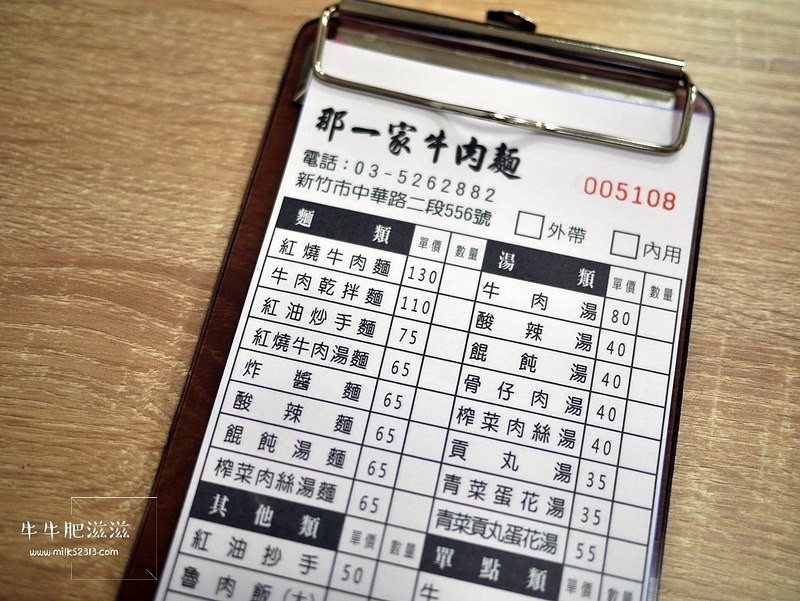 那一家牛肉麵
電話:03-5262882
新竹市中華路二段556號
005108
外帶
內用
麵類 單價 數量
紅燒牛肉麵 130
牛肉乾拌麵 110
紅油炒手麵 75
紅燒牛肉湯麵 65
炸醬麵 65
酸辣麵 65
餛飩湯麵 65
榨菜肉絲湯麵 65
其他類 單價 數量
紅油抄手 50
魯肉飯(大)
湯類 單價 數量
牛肉湯 80
酸辣湯 40
餛飩湯 40
骨仔肉湯 40
榨菜肉絲湯 40
貢丸湯 35
青菜蛋花湯 35
青菜貢丸蛋花湯 55
單點類 單價 數量
牛
牛牛肥滋滋
www.milk52313.com